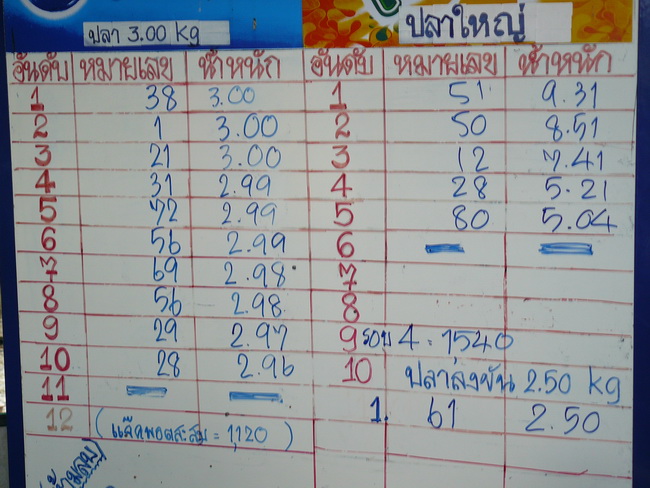 ปลา 3.00 kg
อันดับ หมายเลข น้ำหนัก
1 38 3.00
2 1 3.00
3 21 3.00
4 31 2.99
5 72 2.99
6 56 2.99
7 69 2.98
8 56 2.98
9 29 2.97
10 28 2.96
11
12 (แจ๊คพอตสะสม = 1,120)
ปลาใหญ่
อันดับ หมายเลข น้ำหนัก
1 51 9.31
2 50 8.51
3 12 7.41
4 28 5.21
5 80 5.04
6
7
8
9 รอบ 4 = 1,540
10 ปลาสงขัน 2.50 kg
1. 61 2.50